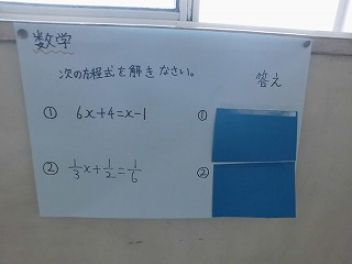 数学
次の方程式を解きなさい。
答え
① 6x+4=x-1
①
② 1/3x+1/2=1/6
②